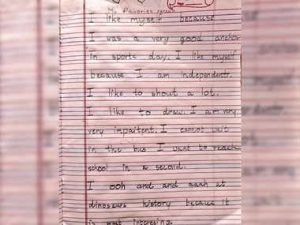 I like myself because
I was a very good anchor
in sports day. I like myself
because I am independent.
I like to shout a lot.
I like to draw. I am very
very impaitent. I cannot wait
in the bus I want to reach
school in a second.
I ooh and and aaah at
dinosaurs history because it
is most interesing.